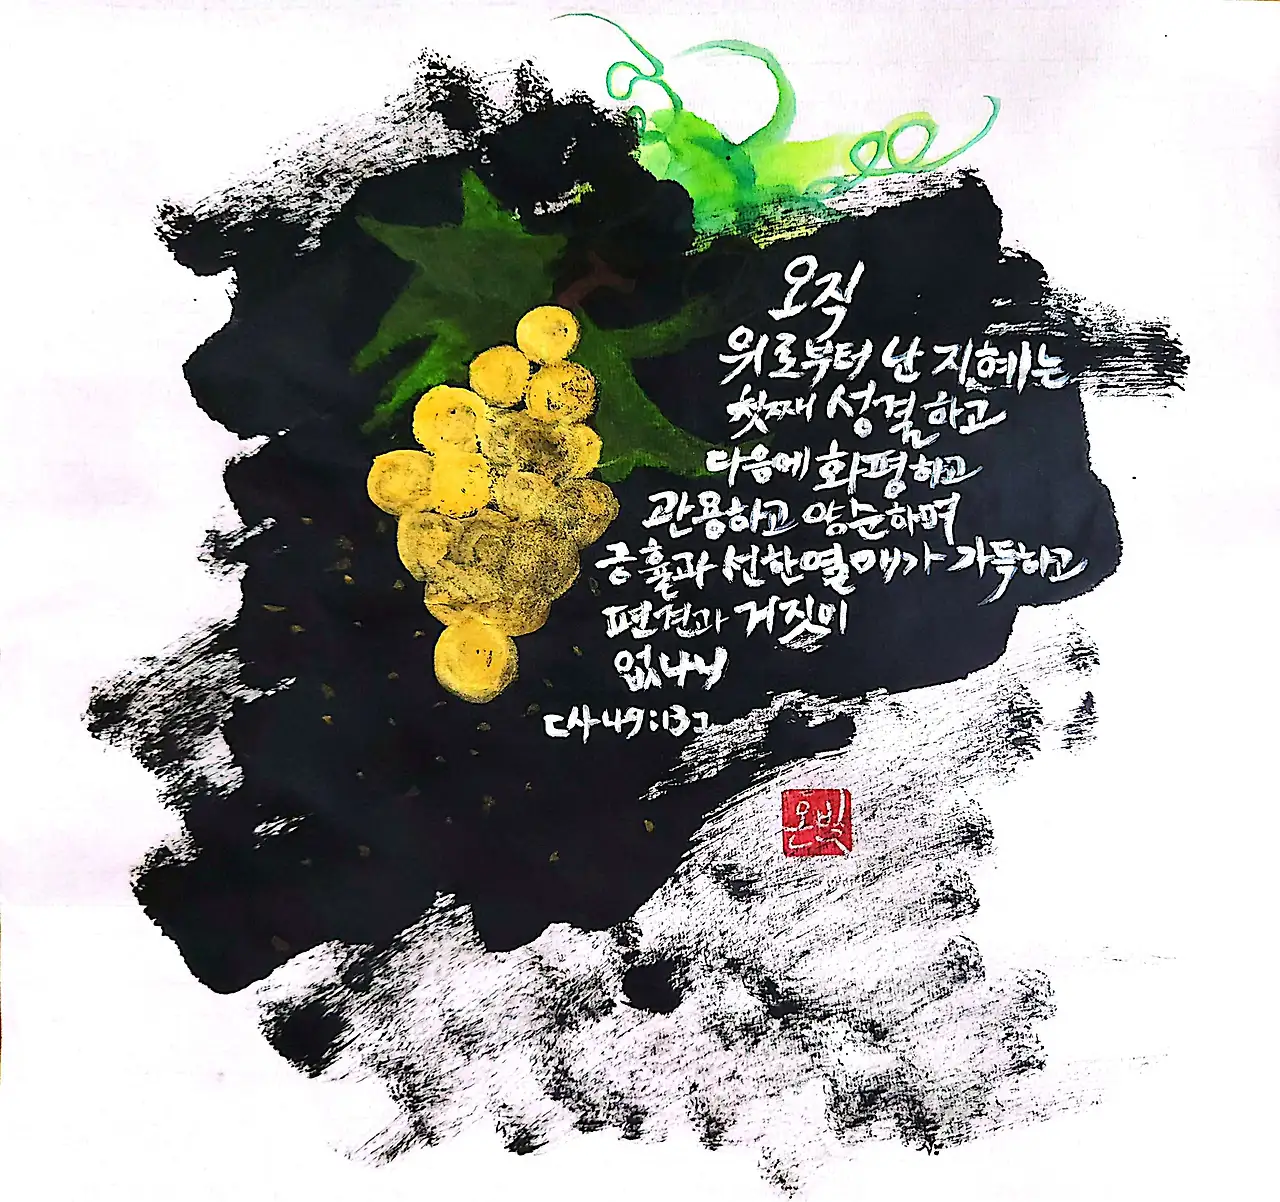 오직
위로부터 난 지혜는
첫째 성결하고
다음에 화평하고
관용하고 양순하며
긍휼과 선한 열매가 가득하고
편견과 거짓이
없나니
[사 49:13]
온빛